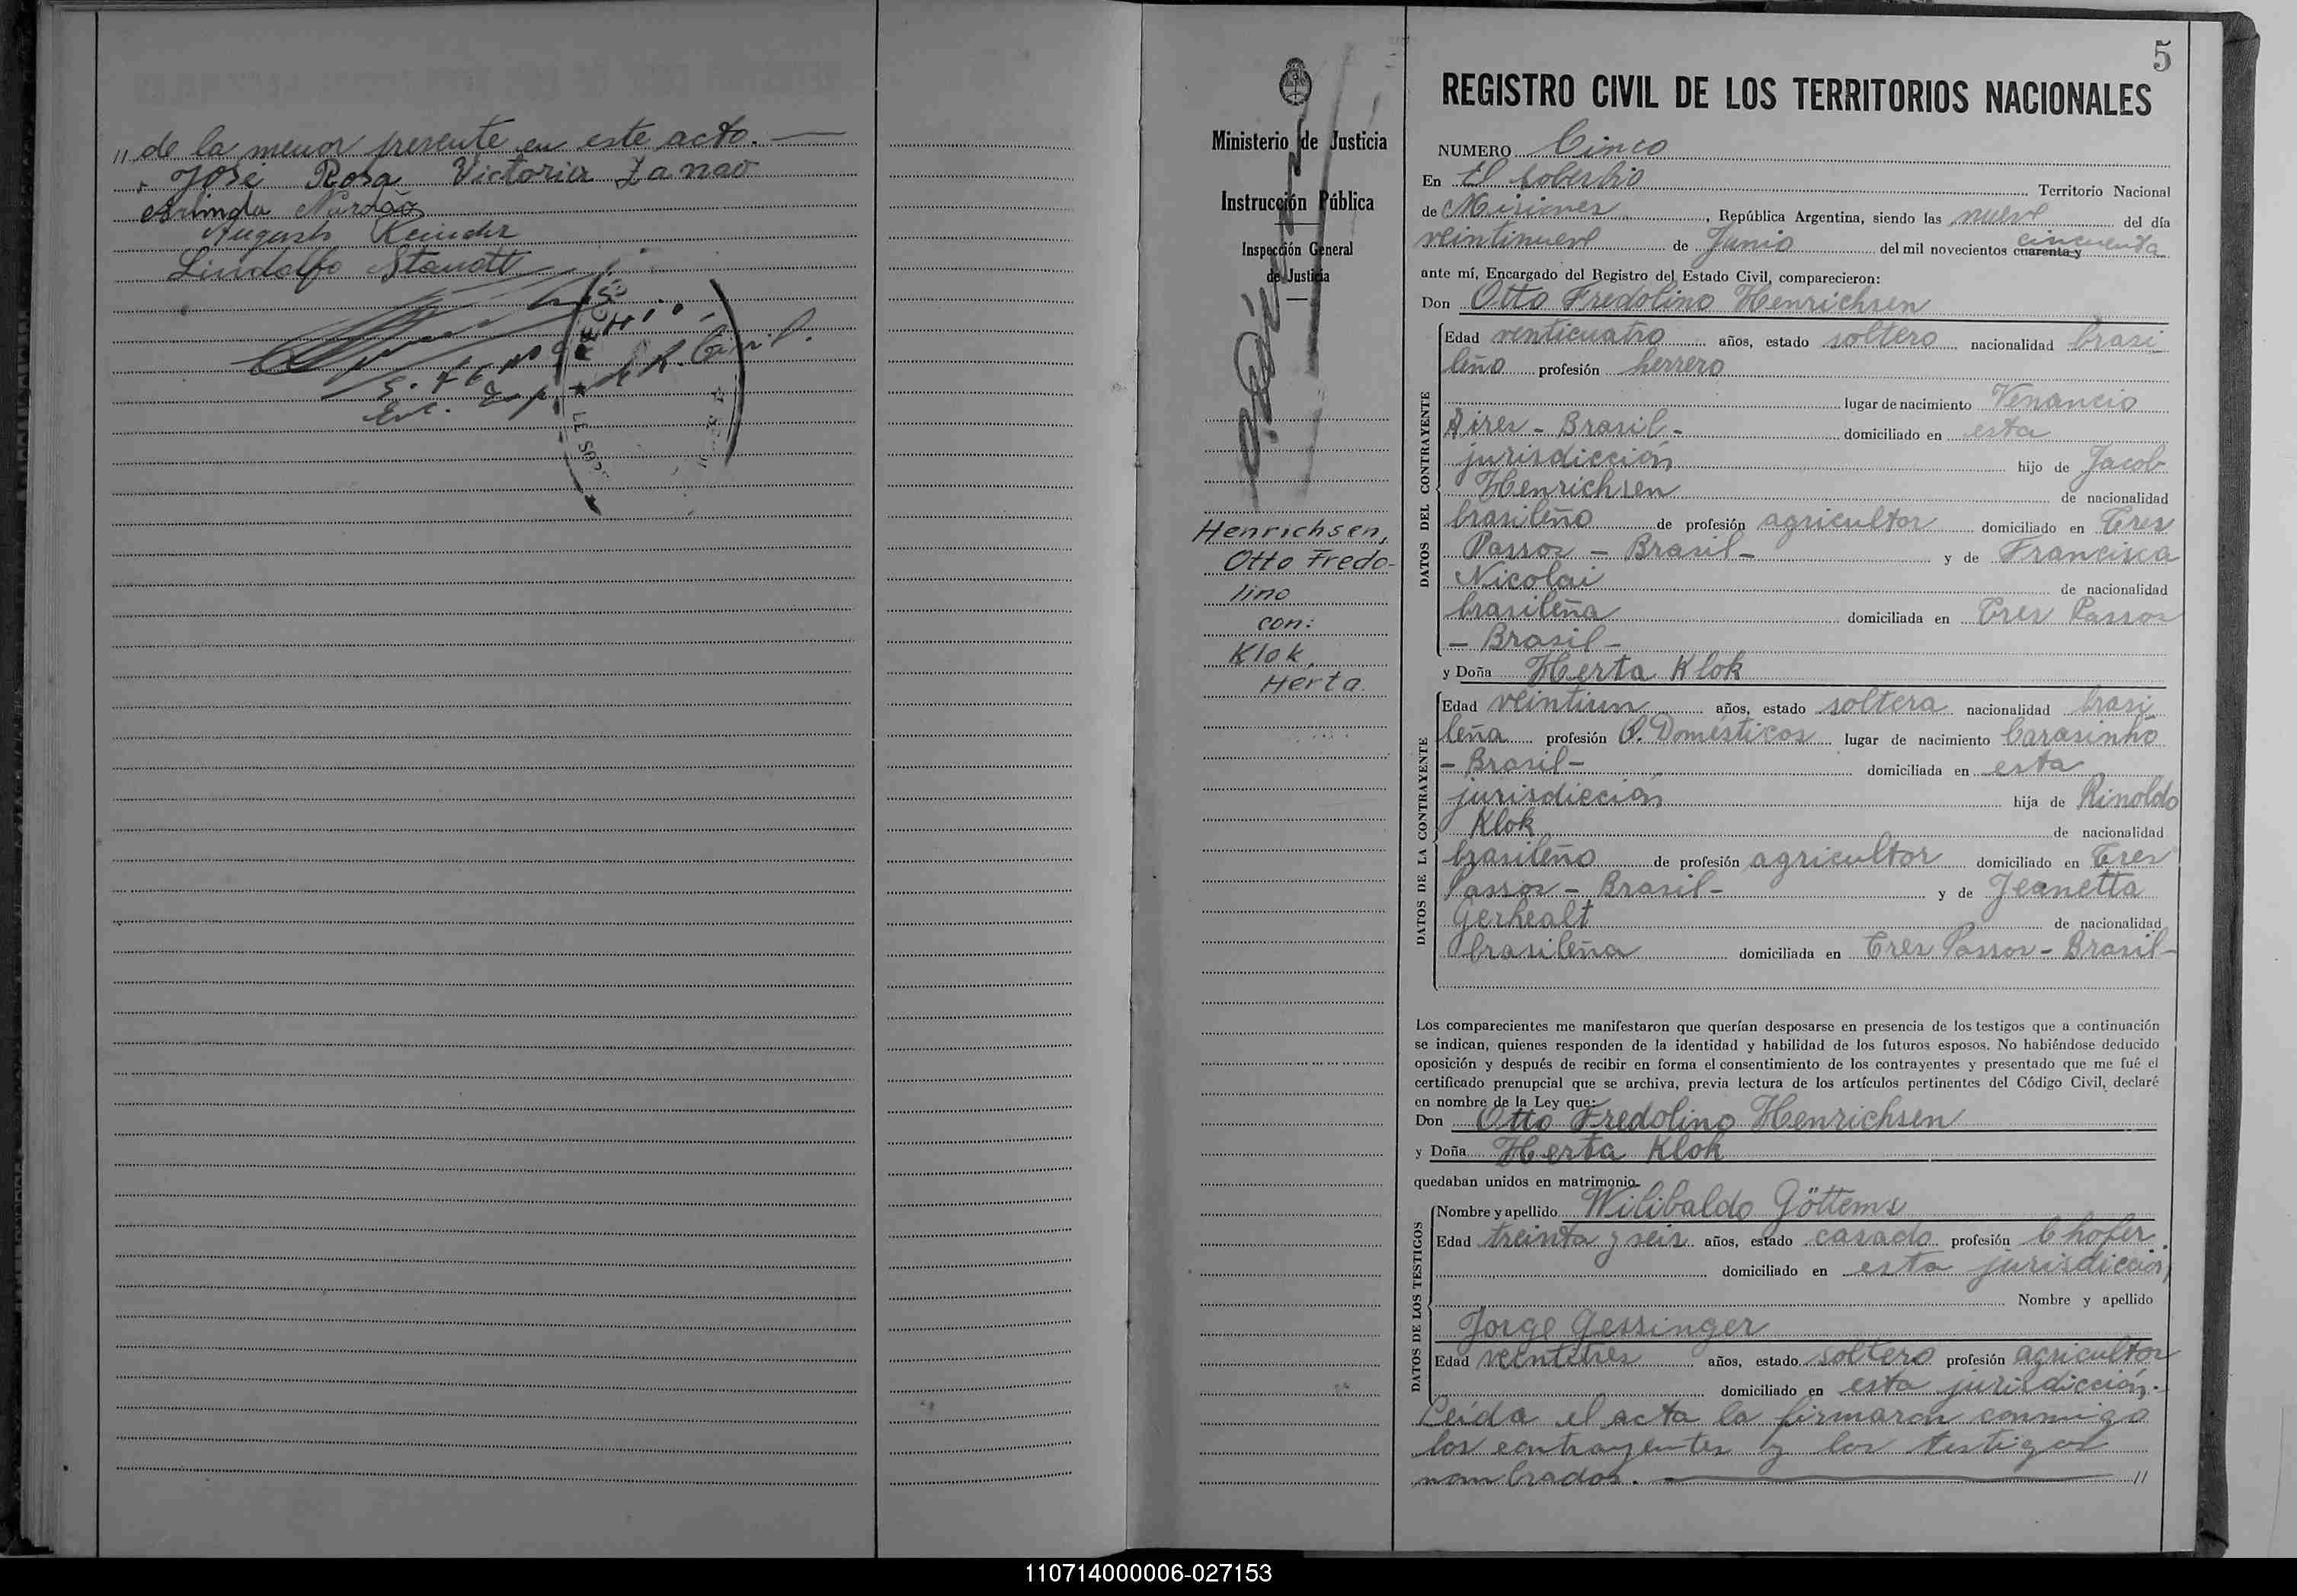 " de la menor presente en este acto.
José Rosa Victoria Zanao
Lindolfo
5
REGISTRO CIVIL DE LOS TERRITORIOS NACIONALES
Ministerio de Justicia
Instrucción Pública
Inspección General
de Justicia
Henrichsen,
Otto Fredo-
lino
con:
Klok,
Herta.
NUMERO Cinco
En El Soberbio Territorio Nacional
de Misiones, República Argentina, siendo las nueve del día
veintinueve de Junio del mil novecientos cuarenta y cincuenta
ante mí, Encargado del Registro del Estado Civil, comparecieron:
Don Otto Fredolino Henrichsen
DATOS DEL CONTRAYENTE
Edad venticuatro años, estado soltero nacionalidad brasi
leño profesión herrero
lugar de nacimiento Venancio
Aires - Brasil - domiciliado en esta
jurisdicción hijo de Jacob
Henrichsen de nacionalidad
brasileño de profesión agricultor domiciliado en Tres
Passos - Brasil - y de Francisca
Nicolai de nacionalidad
brasileña domiciliada en Tres Passos
- Brasil -
y Doña Herta Klok
DATOS DE LA CONTRAYENTE
Edad veintiun años, estado soltera nacionalidad brasi
leña profesión Q. Domésticos lugar de nacimiento Carasinho
- Brasil - domiciliada en esta
jurisdicción hija de Rinoldo
Klok de nacionalidad
brasileño de profesión agricultor domiciliado en Tres
Passos - Brasil - y de Jeanetta
Gerhealt de nacionalidad
brasileña domiciliada en Tres Passos - Brasil -
Los comparecientes me manifestaron que querían desposarse en presencia de los testigos que a continuación
se indican, quienes responden de la identidad y habilidad de los futuros esposos. No habiéndose deducido
oposición y después de recibir en forma el consentimiento de los contrayentes y presentado que me fué el
certificado prenupcial que se archiva, previa lectura de los artículos pertinentes del Código Civil, declaré
en nombre de la Ley que:
Don Otto Fredolino Henrichsen
y Doña Herta Klok
quedaban unidos en matrimonio.
DATOS DE LOS TESTIGOS
Nombre y apellido Wilibaldo Göttems
Edad treinta y seis años, estado casado profesión Chofer.
domiciliado en esta jurisdicción
Nombre y apellido
Jorge Gessinger
Edad veintitres años, estado soltero profesión agricultor
domiciliado en esta jurisdicción.-
Leída el acta la firmaron conmigo
los contrayentes y los testigos
nombrados. "
110714000006-027153